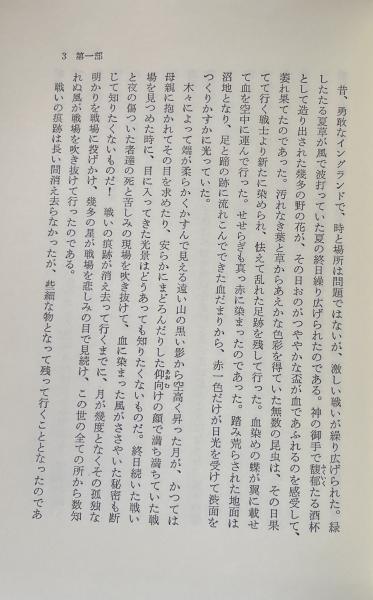 3 第一部
昔、勇敢なイングランドで、時と場所は問題ではないが、激しい戦いが繰り広げられた。緑
したたる夏草が風で波打っていた夏の終日繰り広げられたのである。神の御手で馥郁たる酒杯
ふくいく
として造り出された幾多の野の花が、その日おのがつややかな盃が血であふれるのを感受して、
萎れ果てたのであった。汚れなき葉と草からあえかな色彩を得ていた無数の昆虫は、その日果
て行く戦士より新たに染められ、怯えて乱れた足跡を残して行った。血染めの蝶が翼に載せ
て血を空中に運んで行った。せせらぎも真っ赤に染まったのであった。踏み荒らされた地面は
沼地となり、足と蹄の跡に流れこんでできた血だまりから、赤一色だけが日光を受けて渋面を
つくりかすかに光っていた。
木々によって端が柔らかくかすんで見える遠い山の黒い影から空高く昇った月が、かつては
母親に抱かれてその目を求めたり、安らかにまどろんだりした仰向けの顔で満ち満ちていた戦
場を見つめた時に、目に入ってきた光景はどうあっても知りたくないものだ。終日続いた戦い
と夜の傷ついた者達の死と苦しみの現場を吹き抜けて、血に染まった風がささやいた秘密も断
じて知りたくないものだ！ 戦いの痕跡が消え去って行くまでに、月が幾度となくその孤独な
明かりを戦場に投げかけ、幾多の星が戦場を悲しみの目で見続け、この世の全ての所から数知
れぬ風が戦場を吹き抜けて行ったのである。
戦いの痕跡は長い間消え去らなかったが、些細な物となって残って行くこととなったのであ